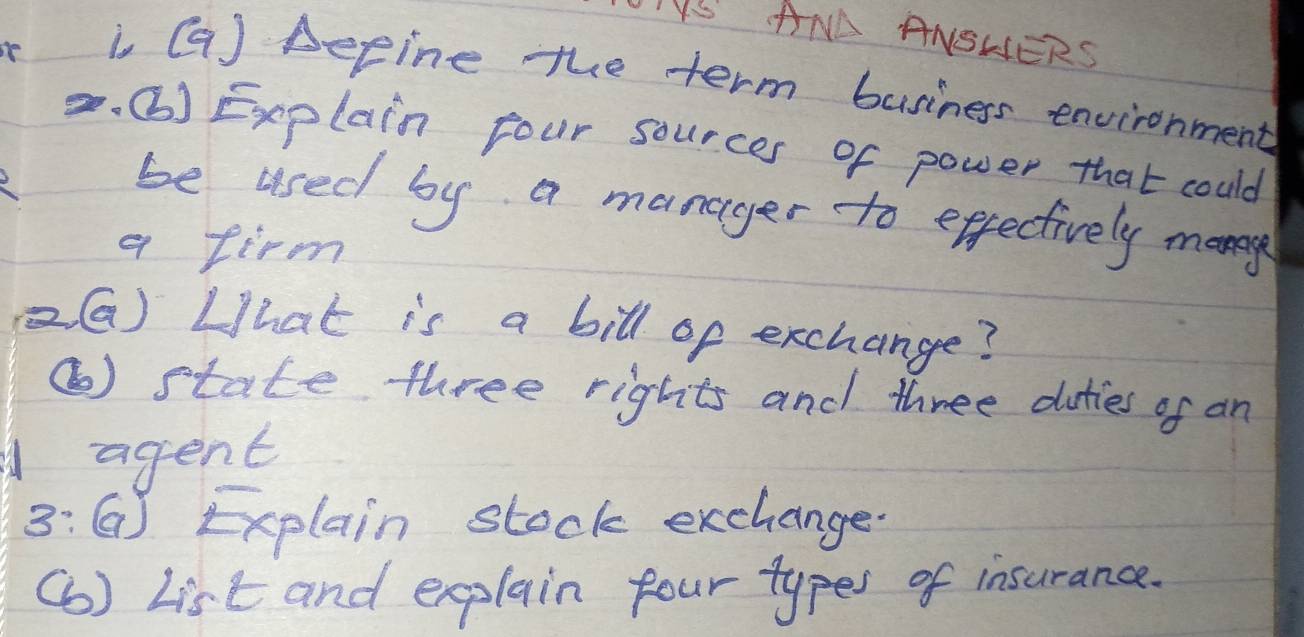 AND ANSWERS
1. (a) Define the term business environment
2. (b) Explain four sources of power that could
be used by a manager to effectively manage
a firm
2. (a) What is a bill of exchange?
(b) state three rights and three duties of an
agent
3: (a) Explain stock exchange.
(b) List and explain four types of insurance.